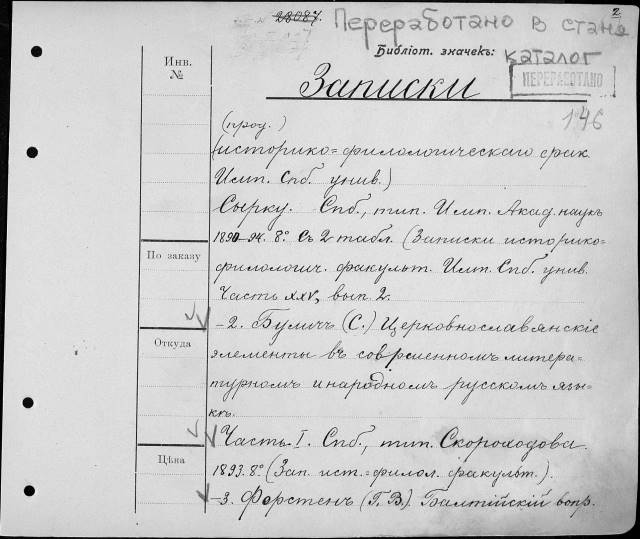 2
28087. Переработано в стана
Библіот. значекъ: каталог
Инв.
№
Записки
ПЕРЕРАБОТАНО
146
(прод.)
(историко=филологическаго фак.
Имп. Спб. унив.)
Сырку. Спб., тип. Имп. Акад. наукъ
1890–94. 8° съ 2 табл. (Записки историко=
По заказу
филологич. факульт. Имп. Спб. унив.
Часть XXV, вып. 2.
–2. Буличъ (С.) Церковнославянскіе
Откуда
элементы въ современномъ литера-
турномъ и народномъ русскомъ язы-
кѣ.
Часть I. Спб., тип. Скороходова.
Цѣна
1893. 8° (Зап. ист.=филол. факульт.).
–3. Форстенъ (Г. В.). Балтійскій вопр.